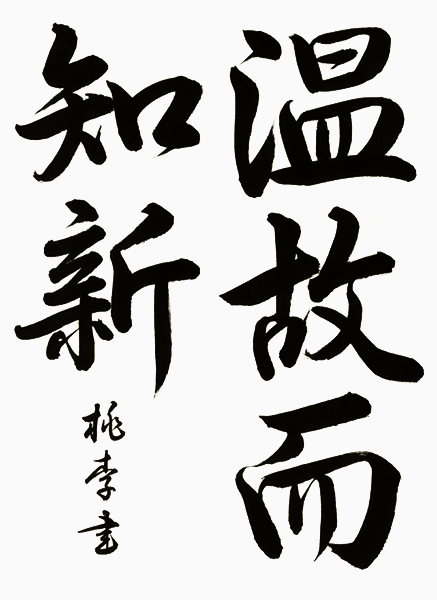 温故而
知新
桃李書